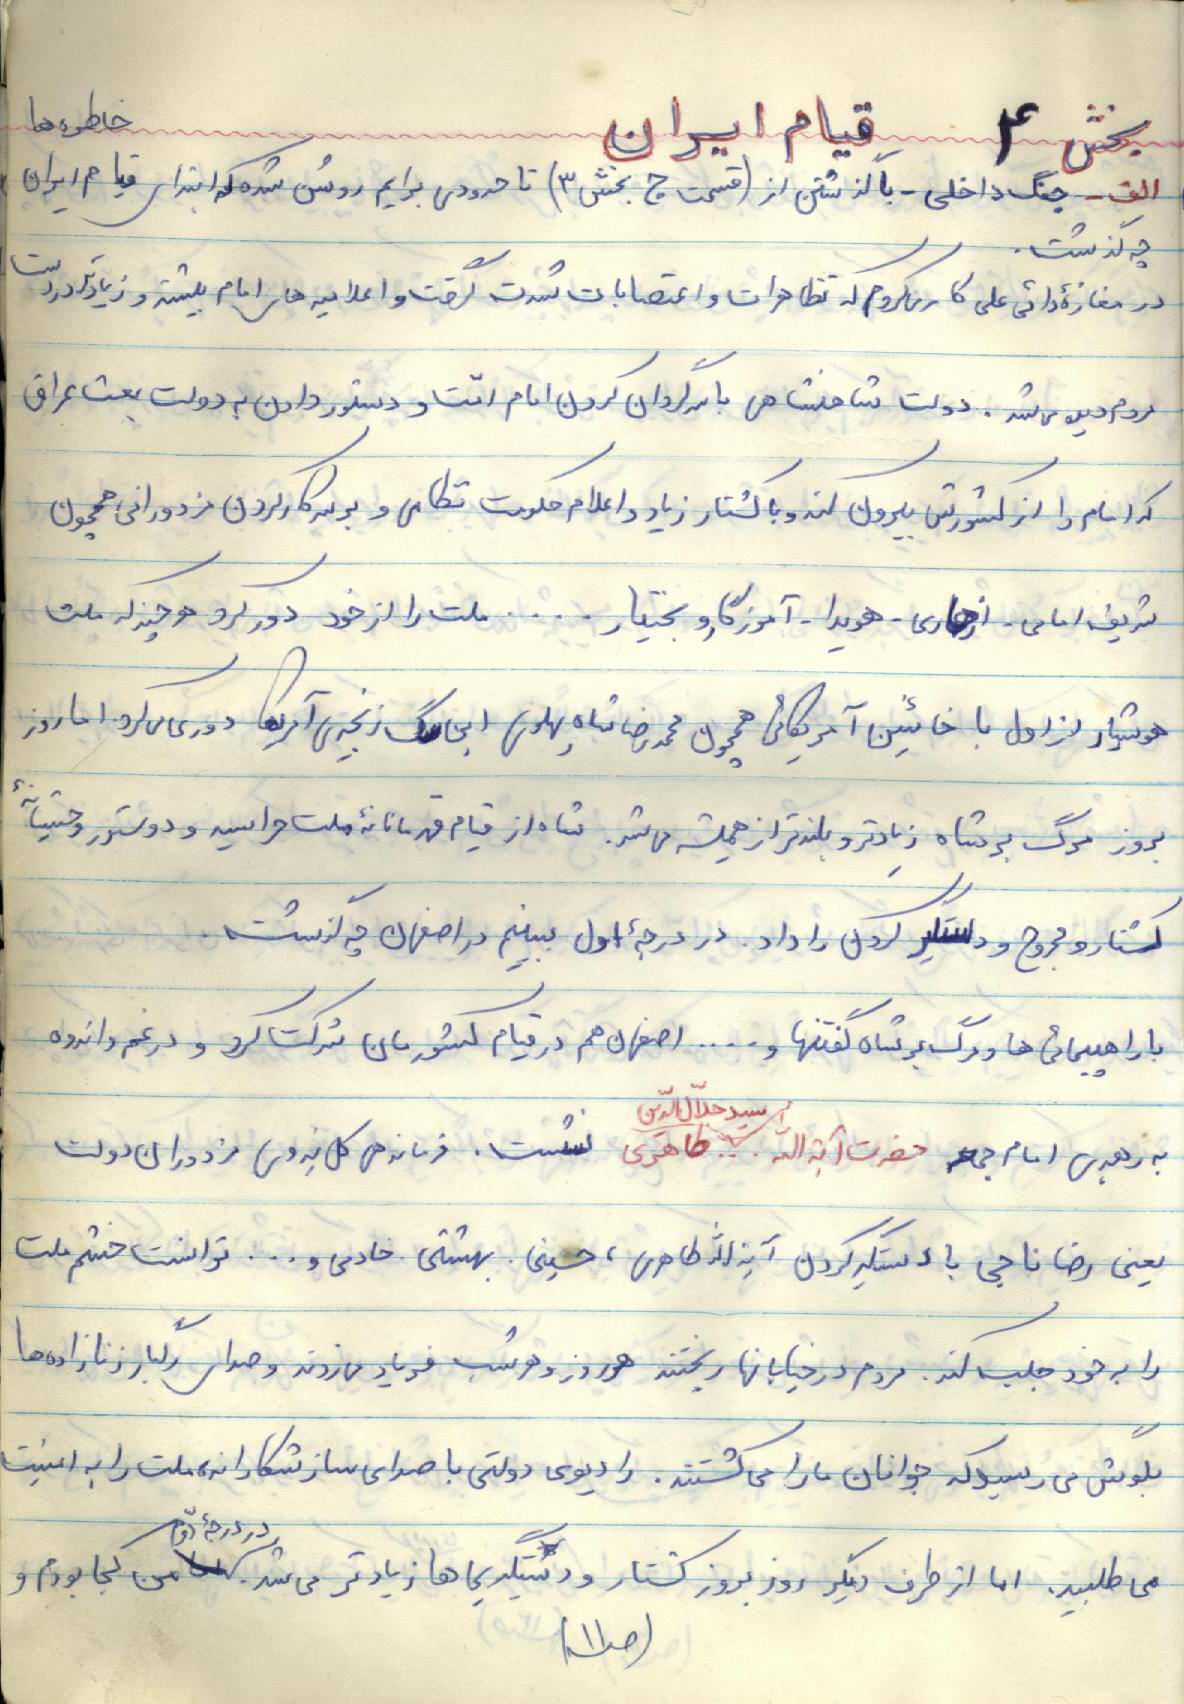 بخش ۴ قیام ایران خاطره‌ها
الف - جنگ داخلی - با گذشتن از (قسمت ج بخش ۳) تا حدودی برایم روشن شده که ابتدای قیام ایران
چه گذشت.
در مغازهٔ دائی علی کار میکردم که تظاهرات و اعتصابات شدت گرفت و اعلامیه های امام بیشتر و زیادتر در دست
مردم دیده می‌شد. دولت شاهنشاهی با سرگردان کردن امام امّت و دستور دادن به دولت بعث عراق
که امام را از کشورش بیرون کند و با کشتار زیاد و اعلام حکومت نظامی و بر سر کار کردن مزدورانی همچون
شریف امامی - ازهاری - هویدا - آموزگار و بختیار .... ملت را از خود دور کرد هر چند که ملت
هوشیار از اول با خائنین آمریکائی همچون محمد رضا شاه پهلوی این سگ زنجیری آمریکا دوری می‌کرد اما روز
بروز مرگ بر شاه زیادتر و بلندتر از همیشه می‌شد. شاه از قیام قهرمانانهٔ ملت هراسید و دستور وحشیانهٔ
کشتار و مجروح و دستگیر کردن را داد. در درجهٔ اول ببینیم در اصفهان چه گذشت.
با راهپیمائی ها و مرگ بر شاه گفتنها و .... اصفهان هم در قیام کشورمان شرکت کرد و در غم و اندوه
به رهبری امام جمعه حضرت آیة الله سید جلال الدّین طاهری نشست. فرمانده‌ی کل نیروی مزدوران دولت
یعنی رضا ناجی با دستگیر کردن آیة الله طاهری، حسینی. بهشتی. خادمی و ... توانست خشم ملت
را به خود جلب کند. مردم در خیابانها ریختند هر روز و هر شب فریاد می‌زدند و صدای رگبار زنازاده‌ها
بگوش می رسید که جوانان ما را می کشتند. رادیوی دولتی با صدای سازشکارانه ملت را به امنیت
می طلبید. اما از طرف دیگر روز بروز کشتار و دستگیریها زیادتر می شد. در درجهٔ دوّم من کجا بودم و
(ص۱۱)